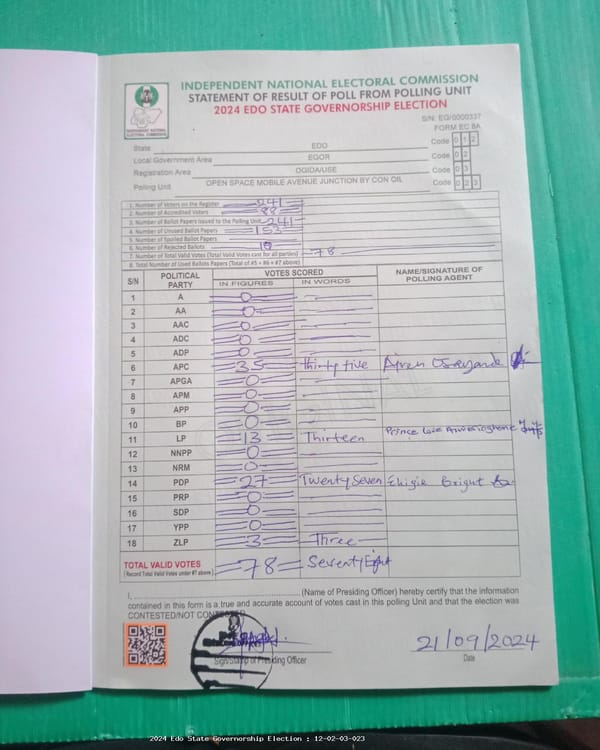 INDEPENDENT NATIONAL ELECTORAL COMMISSION
STATEMENT OF RESULT OF POLL FROM POLLING UNIT
2024 EDO STATE GOVERNORSHIP ELECTION
INDEPENDENT NATIONAL ELECTORAL COMMISSION
S/N: EG/0000337
FORM EC 8A
State EDO Code 0 1 2
Local Government Area EGOR Code 0 2
Registration Area OGIDA/USE Code 0 3
Polling Unit OPEN SPACE MOBILE AVENUE JUNCTION BY CON OIL Code 0 2 3
1. Number of Voters on the Register 241
2. Number of Accredited Voters 88
3. Number of Ballot Papers Issued to the Polling Unit 241
4. Number of Unused Ballot Papers 153
5. Number of Spoiled Ballot Papers
6. Number of Rejected Ballots 10
7. Number of Total Valid Votes (Total Valid Votes cast for all parties) 78
8. Total Number of Used Ballots Papers (Total of #5 + #6 + #7 above)
S/N POLITICAL PARTY VOTES SCORED NAME/SIGNATURE OF POLLING AGENT
IN FIGURES IN WORDS
1 A 0
2 AA 0
3 AAC 0
4 ADC 0
5 ADP 0
6 APC 35 Thirty five
7 APGA 0
8 APM 0
9 APP 0
10 BP 0
11 LP 13 Thirteen Prince Love
12 NNPP 0
13 NRM 0
14 PDP 27 Twenty Seven Ehigie Bright
15 PRP 0
16 SDP 0
17 YPP 0
18 ZLP 3 Three
TOTAL VALID VOTES 78 Seventy Eight
(Record Total Valid Votes under #7 above)
I, (Name of Presiding Officer) hereby certify that the information
contained in this form is a true and accurate account of votes cast in this polling Unit and that the election was
CONTESTED/NOT CONTESTED
21/09/2024
Sign/Stamp of Presiding Officer Date
2024 Edo State Governorship Election : 12-02-03-023